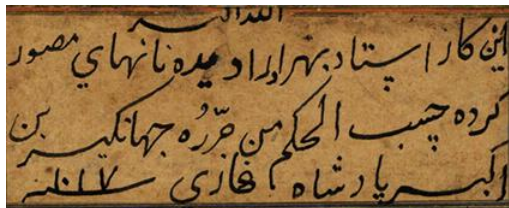 الله اکبر
این کار استاد بهزاد را دیده نانهای مصور
کرده حسب الحکم من حرّره جهانگیر بن
اکبر پادشاه غازی سنه ۱۰۱۷